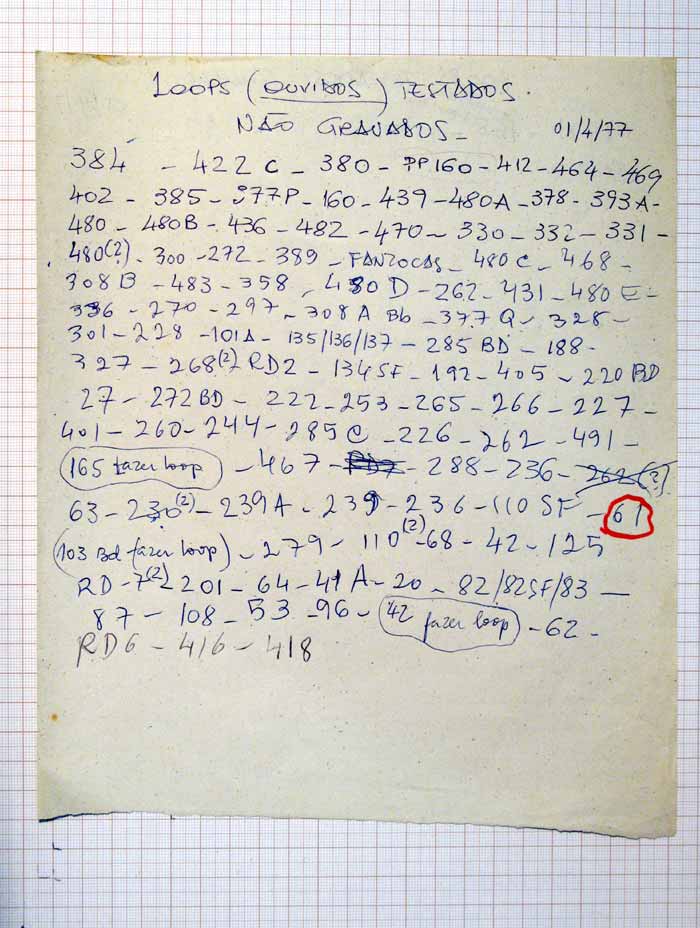 LOOPS (OUVIDOS) TESTADOS.
NÃO GRAVADOS_ 01/4/77
384 - 422 C - 380 - PP160 - 412 - 464 - 469
402 - 385 - 377P - 160 - 439 - 480A - 378 - 393A -
480 - 480B - 436 - 482 - 470 - 330 - 332 - 331 -
480(2) - 300 - 272 - 389 - FANZOCAS - 480 C - 468 -
308 B - 483 - 358 - 480 D - 262 - 431 - 480 E -
336 - 270 - 297 - 308 A Bb - 377 Q - 328 -
301 - 228 - 101A - 135/136/137 - 285 BD - 188 -
327 - 268(2) RD2 - 134 SF - 192 - 405 - 220 BD
27 - 272 BD - 222 - 253 - 265 - 266 - 227 -
401 - 260 - 244 - 285 C - 226 - 262 - 491 -
165 fazer loop - 467 - - 288 - 236 - 262 (?)
63 - 230(2) - 239A - 239 - 236 - 110 SF - 61
103 Bd (fazer loop) - 279 - 110(2) - 68 - 42 - 125
RD - 7(2) - 201 - 64 - 41 A - 20 - 82/82SF/83 -
87 - 108 - 53 - 96 - 42 fazer loop - 62 -
RD6 - 416 - 418